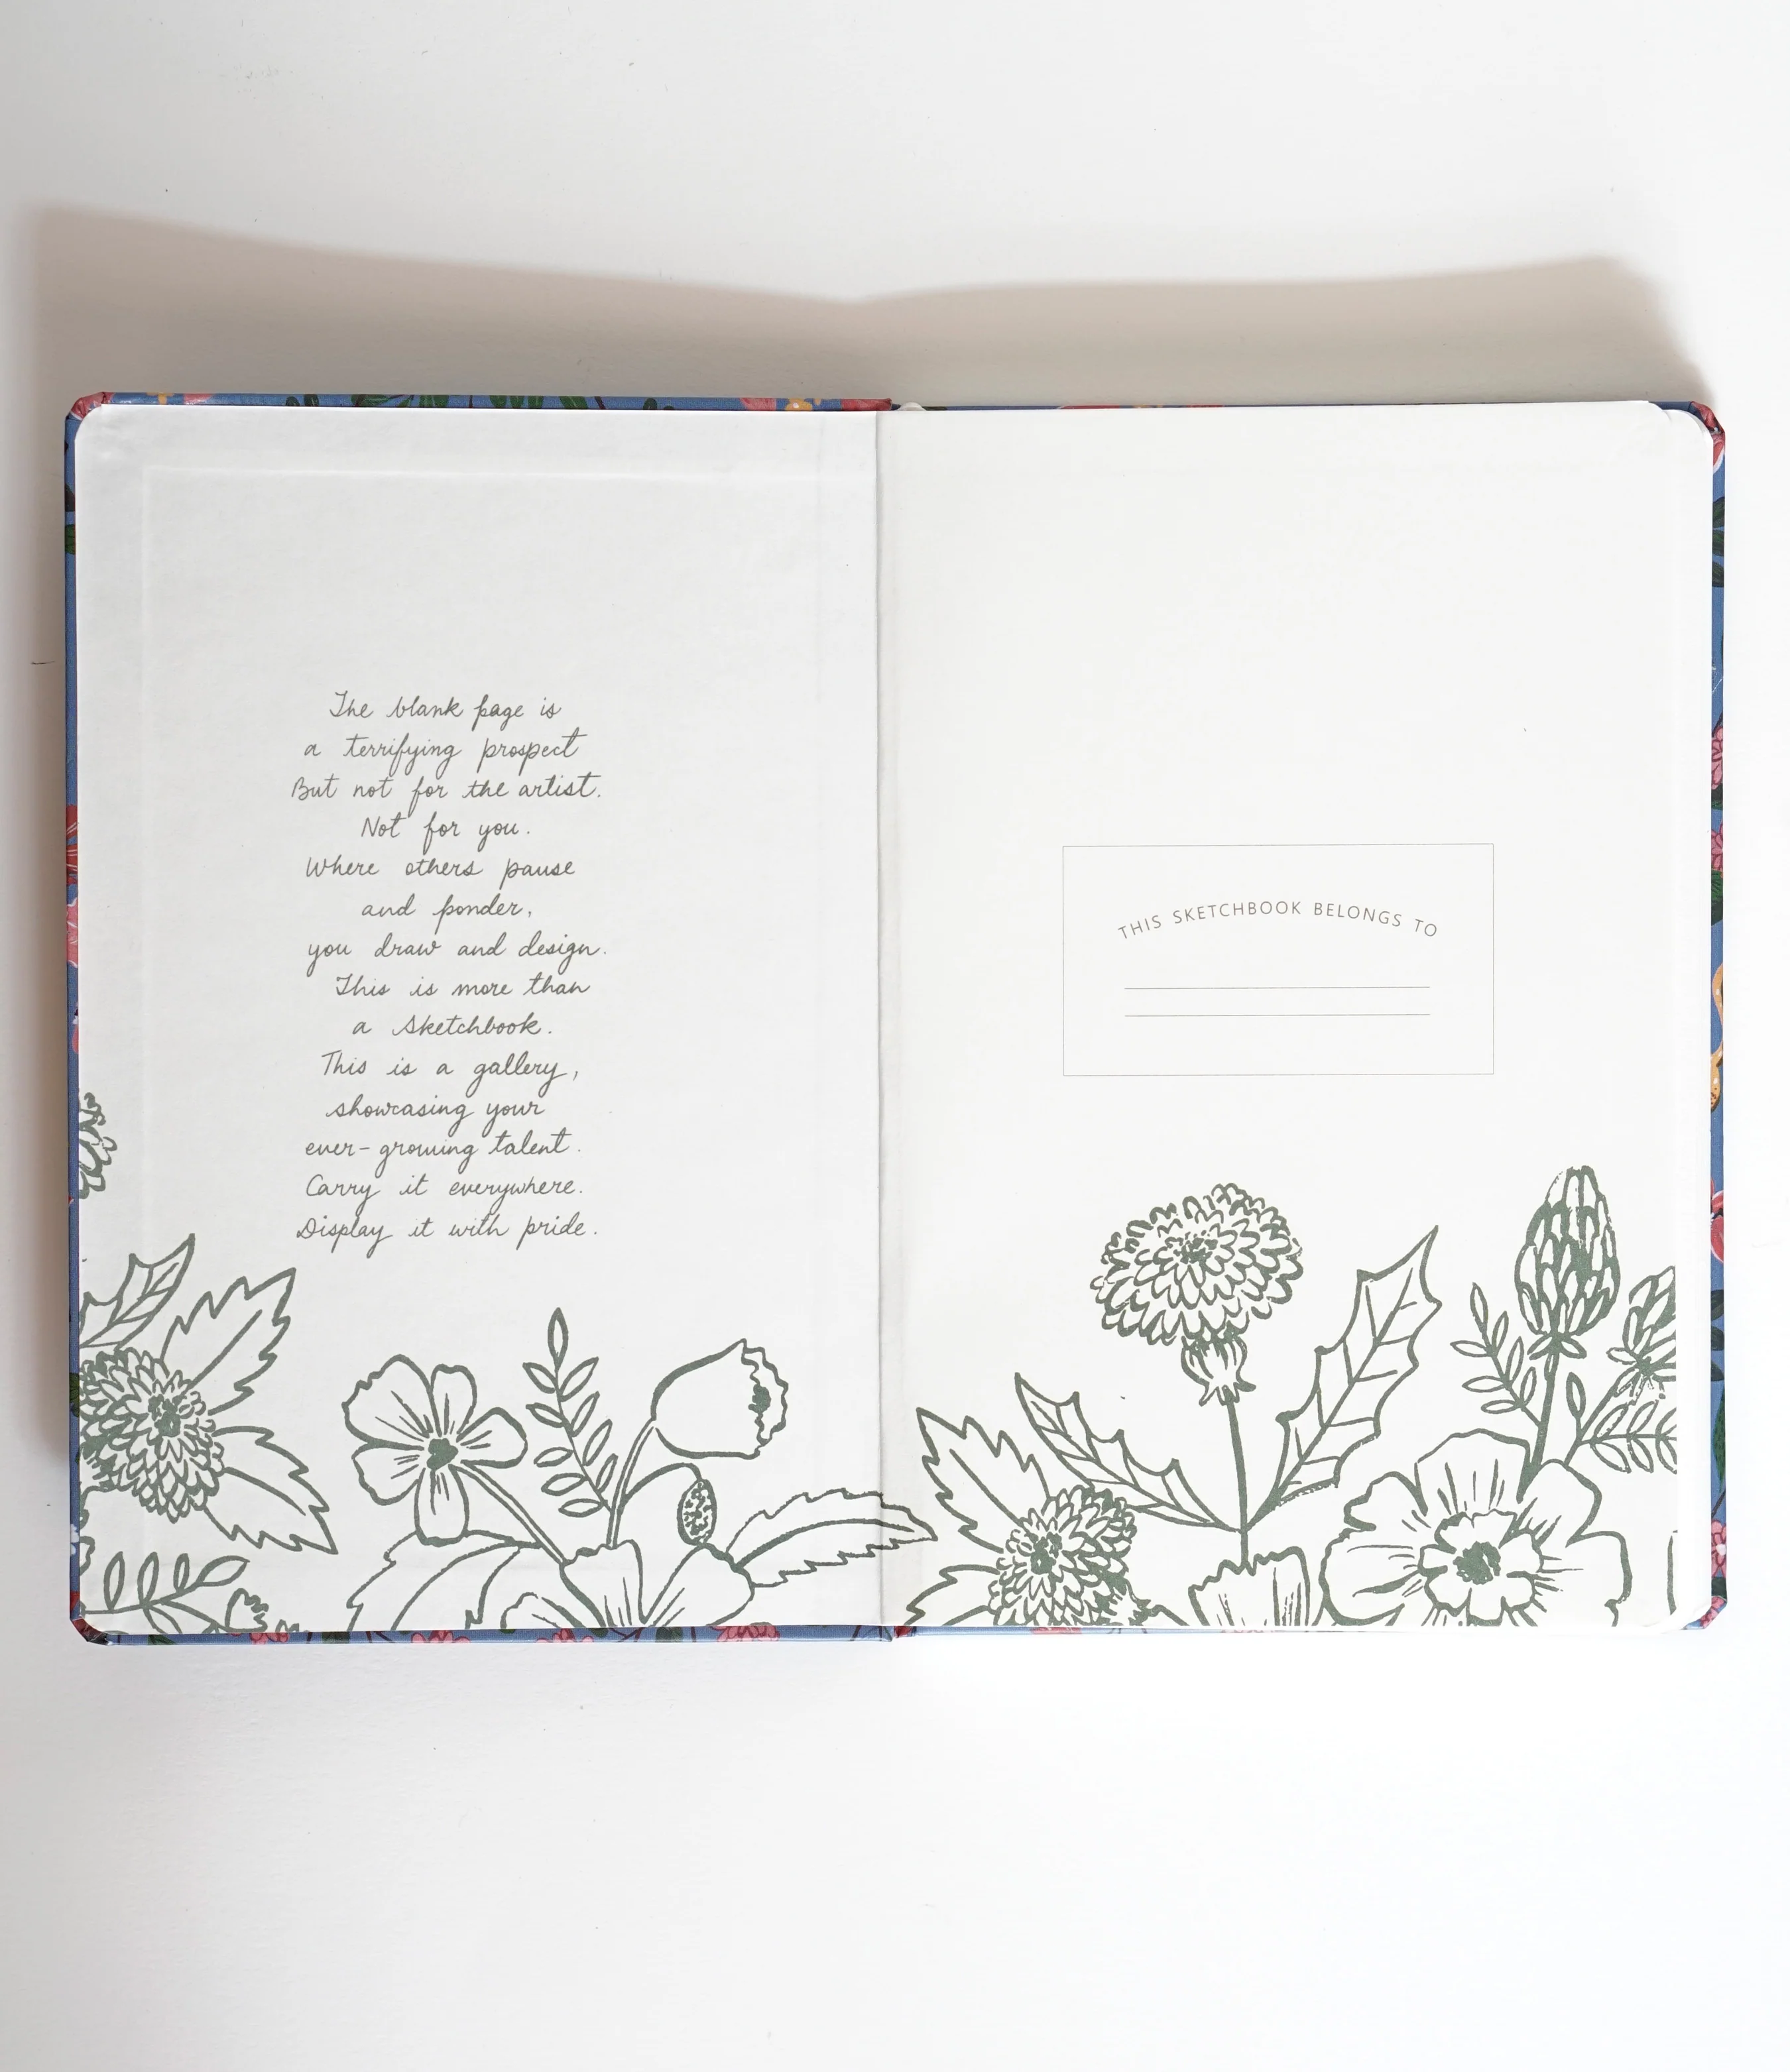 The blank page is
a terrifying prospect
But not for the artist.
Not for you.
Where others pause
and ponder,
you draw and design.
This is more than
a sketchbook.
This is a gallery,
showcasing your
ever-growing talent.
Carry it everywhere.
Display it with pride.
THIS SKETCHBOOK BELONGS TO